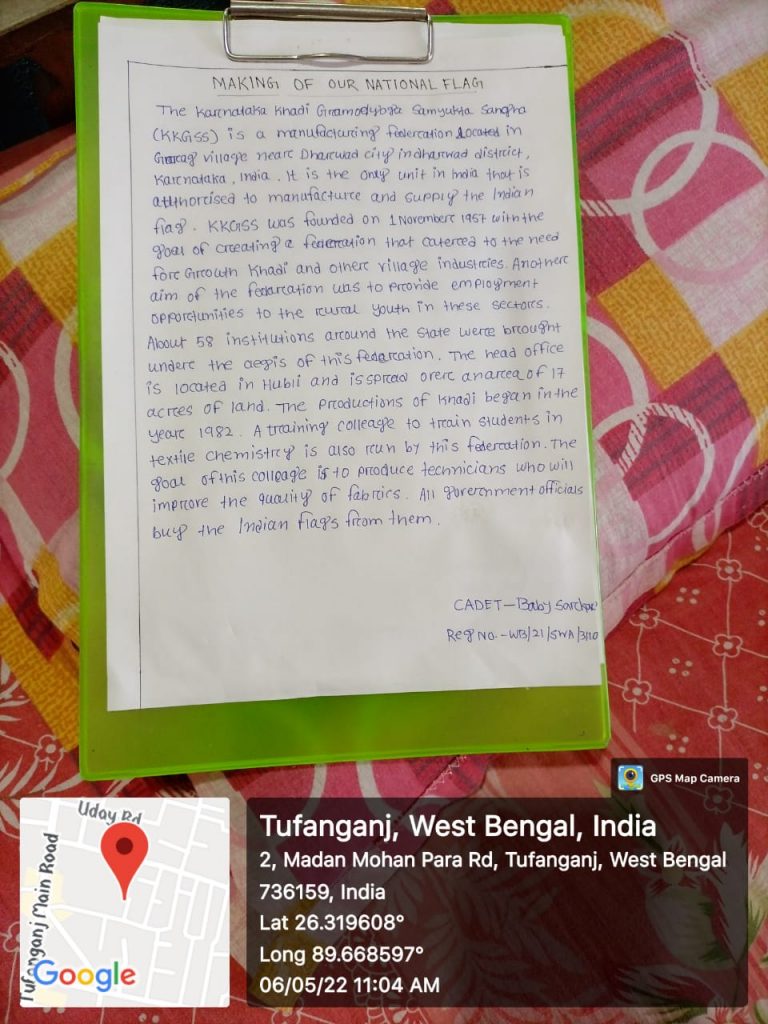 MAKING OF OUR NATIONAL FLAG
The Karnataka Khadi Gramodyoga Samyukta Sangha
(KKGSS) is a manufacturing federation located in
Garag village near Dharwad city in dharwad district,
Karnataka, India. It is the only unit in India that is
authorised to manufacture and supply the Indian
flag. KKGSS was founded on 1 November 1957 with the
goal of creating a federation that catered to the need
for Growth Khadi and other village industries. Another
aim of the fedaration was to provide employment
opportunities to the rural youth in these sectors.
About 58 institutions around the state were brought
under the aegis of this fedaration. The head office
is located in Hubli and is spread over an area of 17
acres of land. The productions of Khadi began in the
year 1982. A training colleage to train students in
textile chemistry is also run by this federation. The
goal of this colleage is to produce technicians who will
improve the quality of fabrics. All government officials
buy the Indian flags from them.
CADET - Baby Sarkar
Reg No. - WB/21/SWA/3110
GPS Map Camera
Uday Rd
Tufanganj Main Road
Google
Tufanganj, West Bengal, India
2, Madan Mohan Para Rd, Tufanganj, West Bengal
736159, India
Lat 26.319608°
Long 89.668597°
06/05/22 11:04 AM